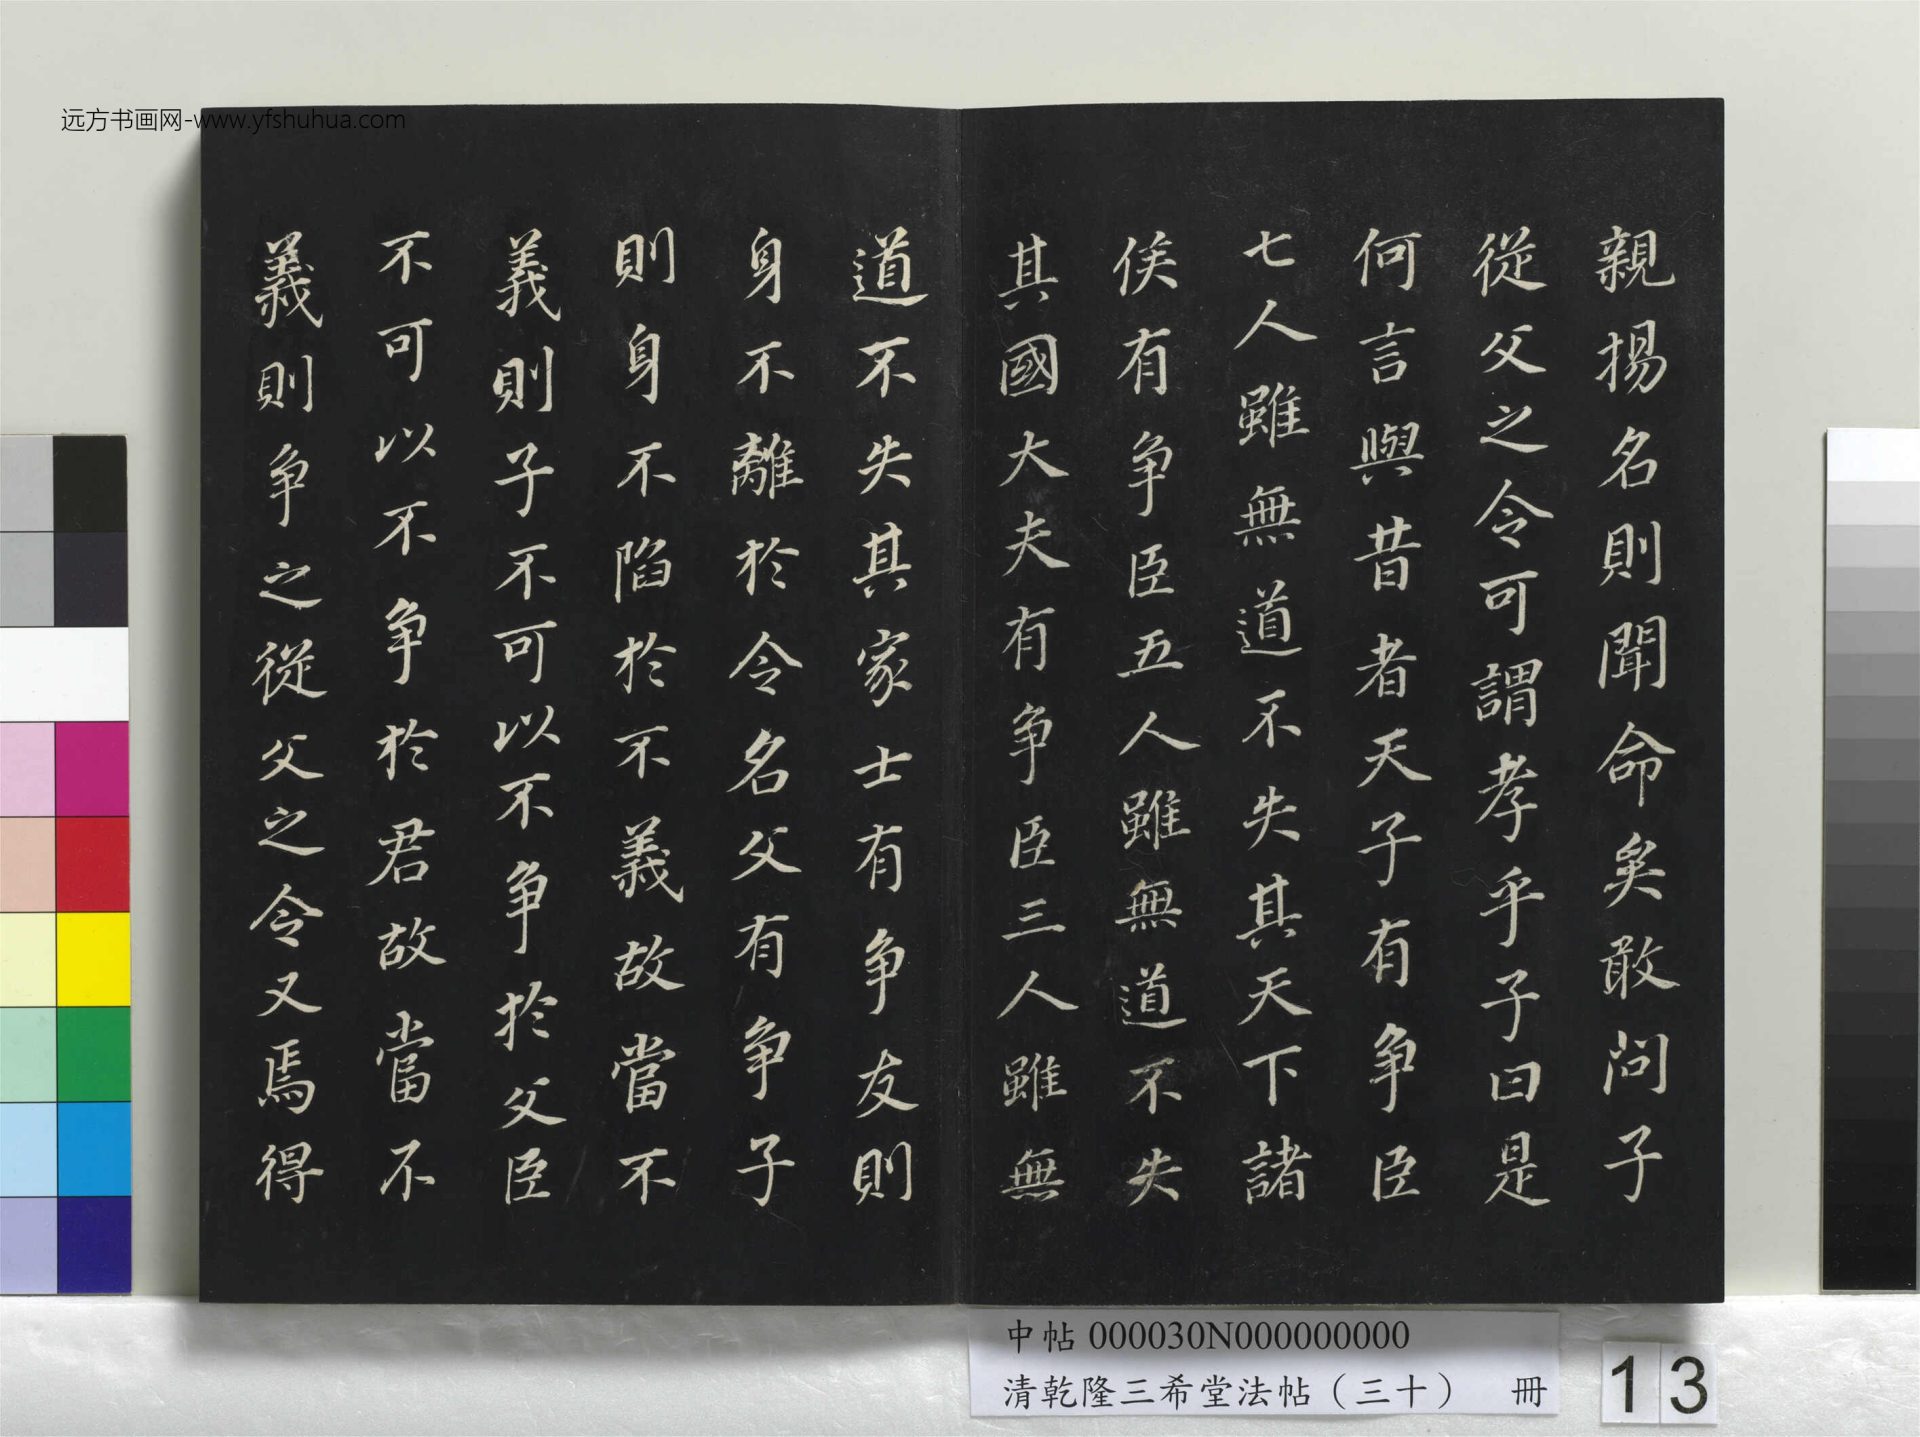 远方书画网-www.yfshuhua.com
親揚名則聞命矣敢问子
從父之令可謂孝乎子曰是
何言與昔者天子有争臣
七人雖無道不失其天下諸
侯有争臣五人雖無道不失
其國大夫有争臣三人雖無
道不失其家士有争友則
身不離於令名父有争子
則身不陷於不義故當不
義則子不可以不争於父臣
不可以不争於君故當不
義則争之從父之令又焉得
中帖 000030N000000000
清乾隆三希堂法帖（三十） 冊
13